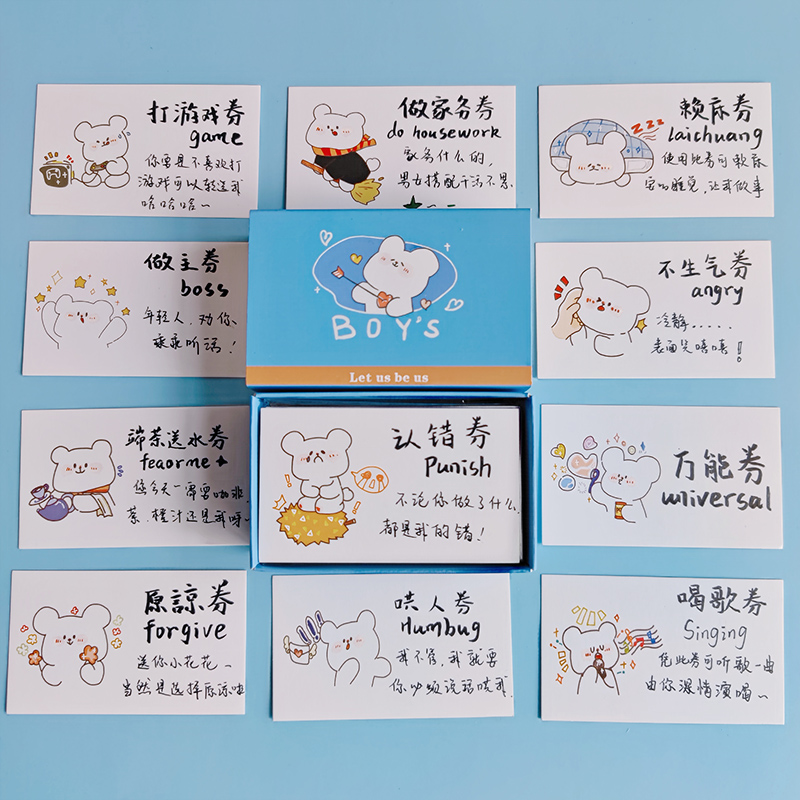 打游戏券
game
你要是不喜欢打
游戏可以转送我
哈哈哈哈~
做家务券
do housework
家务什么的,
男女搭配干活不累
赖床券
laichuang
使用此券可赖床
让我做事
做主券
boss
年轻人,劝你
乖乖听话!
BOY'S
Let us be us
不生气券
angry
冷静.....
表面笑嘻嘻!
端茶送水券
feaorme
您今天需要咖啡
茶、橙汁还是我呀~
认错券
Punish
不论你做了什么
都是我的错!
万能券
universal
原諒券
forgive
送你小花花~
当然是选择原谅啦
哄人券
Humbug
我不管,我就要
你以顺说话哄我.
喝歌券
Singing
凭此券可听歌一曲
由你深情演唱~
zzz